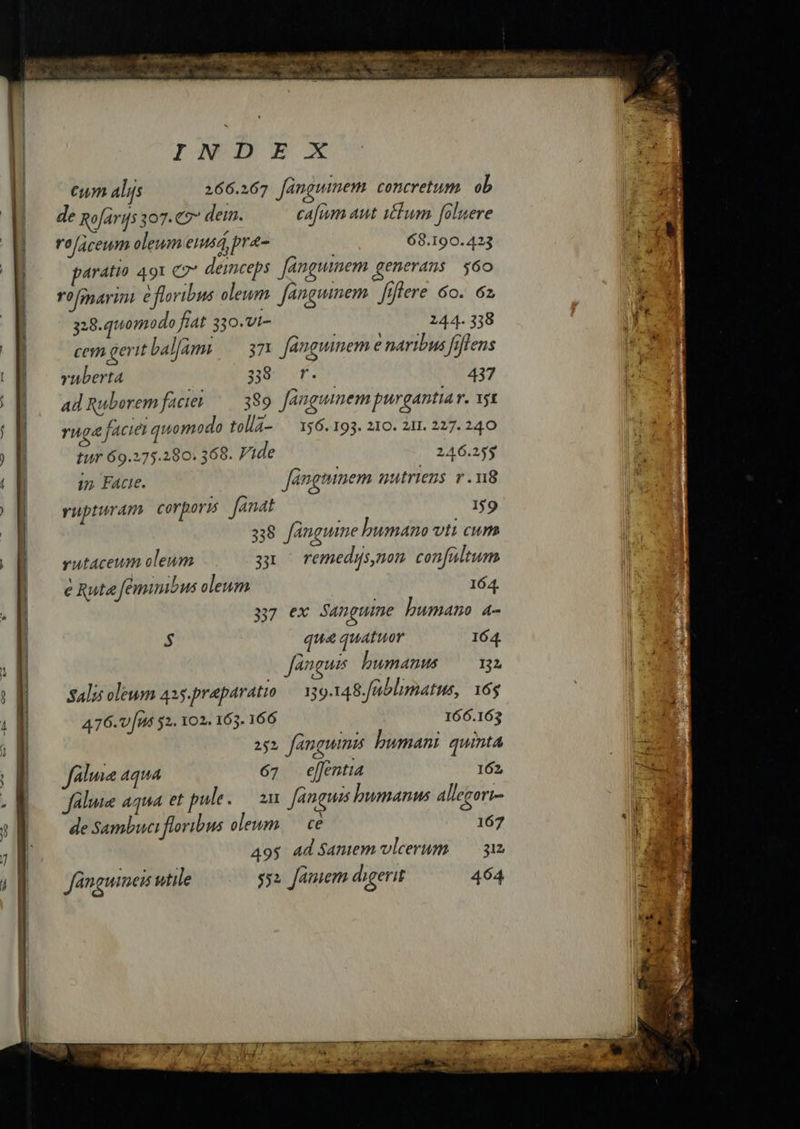 INDEX
cum alijs 266.267
de Rosarijs 307.& dein.
rosaceum oleum eiusq́, præ-
paratio 491 & deinceps
rosmarini è floribus oleum
328.quomodo fiat 330.vi-
cem gerit balsami 371
ruberta 338
ad Ruborem faciei 389
rugæ faciei quomodo tollā-
tur 69.275.280. 368. Vide
in Facie.
rupturam corporis sanat
338
rutaceum oleum 331
è Rutæ seminibus oleum
337
S
Salis oleum 425.præparatio
476.vsus 52. 102. 163. 166
252
saluiæ aqua 67
saluiæ aqua et pule. 211
de Sambuci floribus oleum
495
sanguineis utile 552
sanguinem concretum ob
casum aut ictum soluere
68.190.423
sanguinem generans 560
sanguinem sistere 60. 62
244. 338
sanguinem e naribus sistens
r. 437
sanguinem purgantia r. 151
156. 193. 210. 211. 227. 240
246.255
sanguinem nutriens r. 118
159
sanguine humano vti cum
remedijs,non consultum
164
ex Sanguine humano a-
quæ quatuor 164
sanguis humanus 132
139.148.sublimatus, 165
166.163
sanguinis humani quinta
essentia 162
sanguis humanus allegori-
ce 167
ad Saniem vlcerum 312
saniem digerit 464